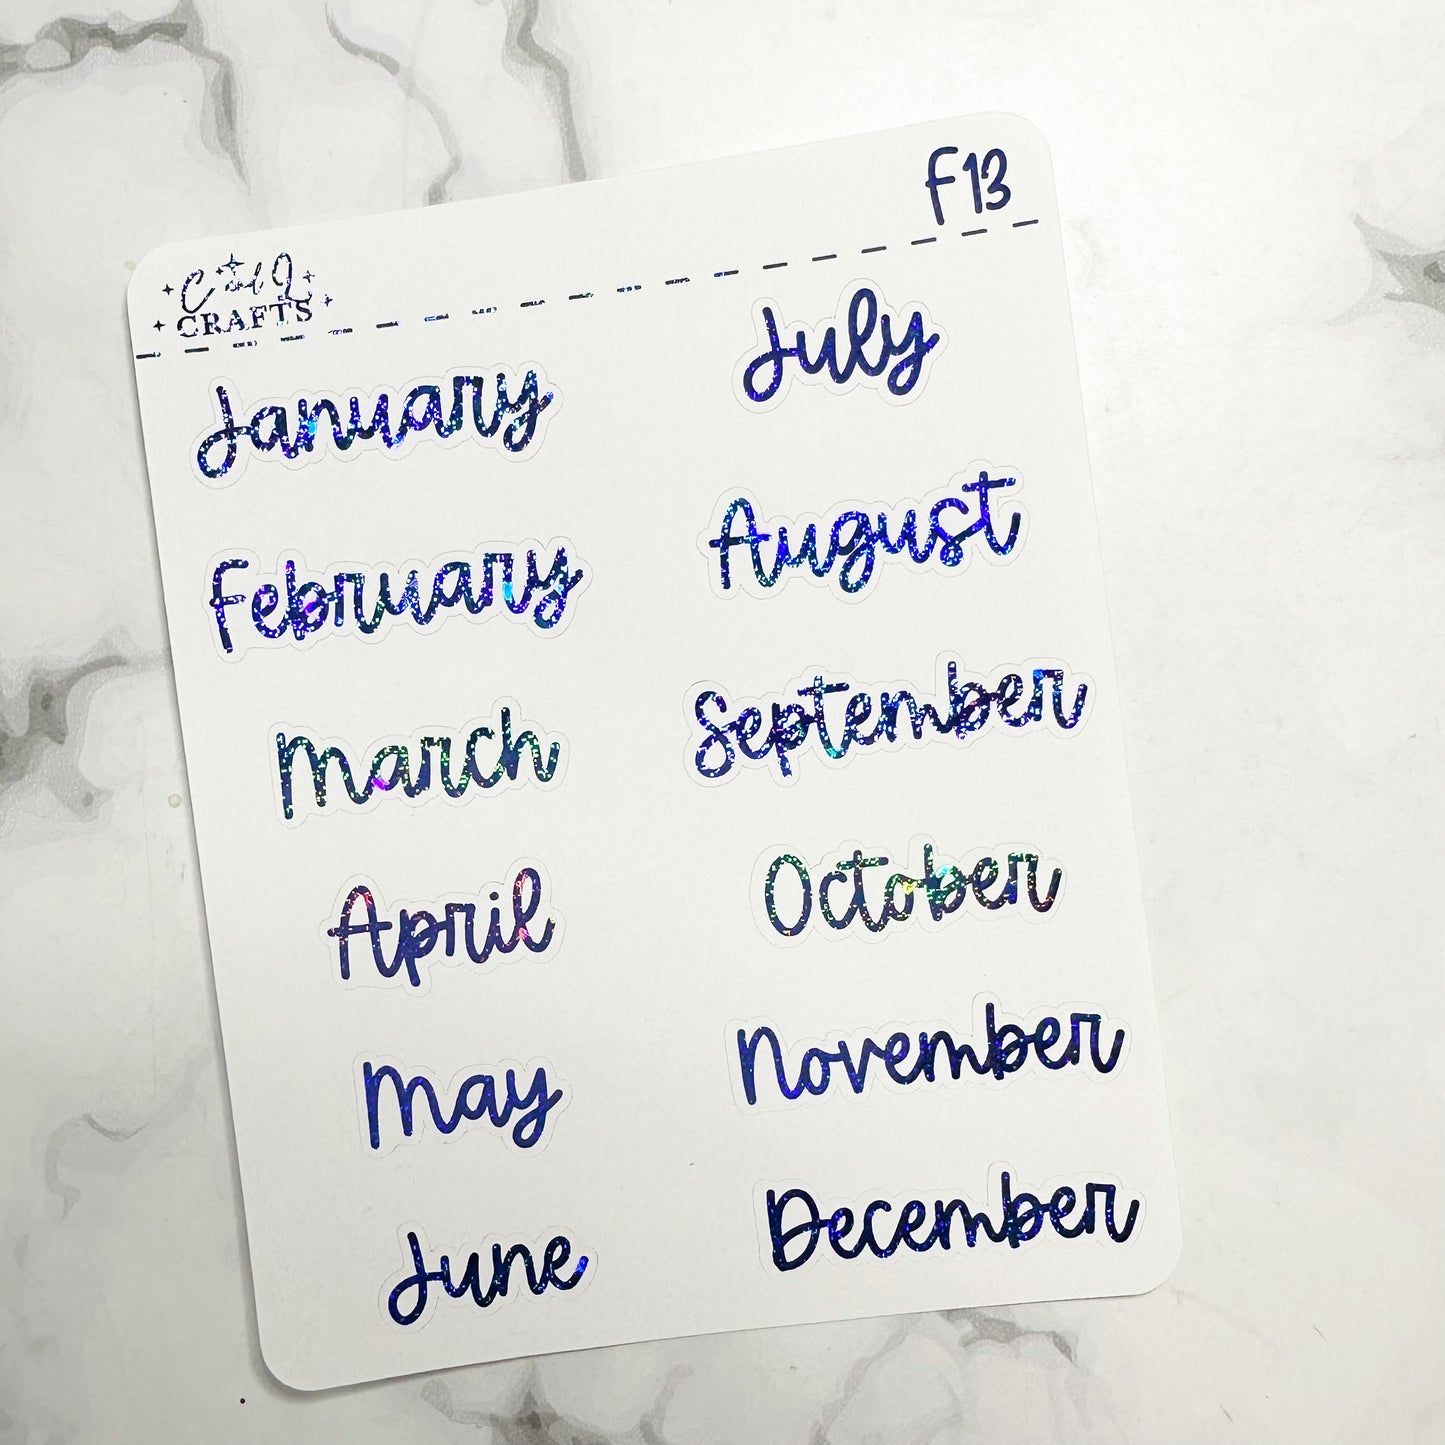 F13
C and Q
CRAFTS
January
February
March
April
May
June
July
August
September
October
November
December